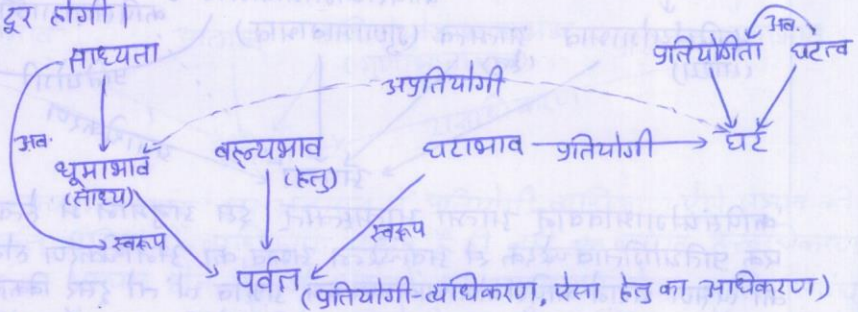 दूर होगी।
साध्यता
अव.
प्रतियोगीता घटत्व
अप्रतियोगी
अव.
धूमाभाव वह्न्यभाव घटाभाव प्रतियोगी घट
(साध्य) (हेतु)
स्वरूप स्वरूप
पर्वत (प्रतियोगी-व्यधिकरण, ऐसा हेतु का अधिकरण)